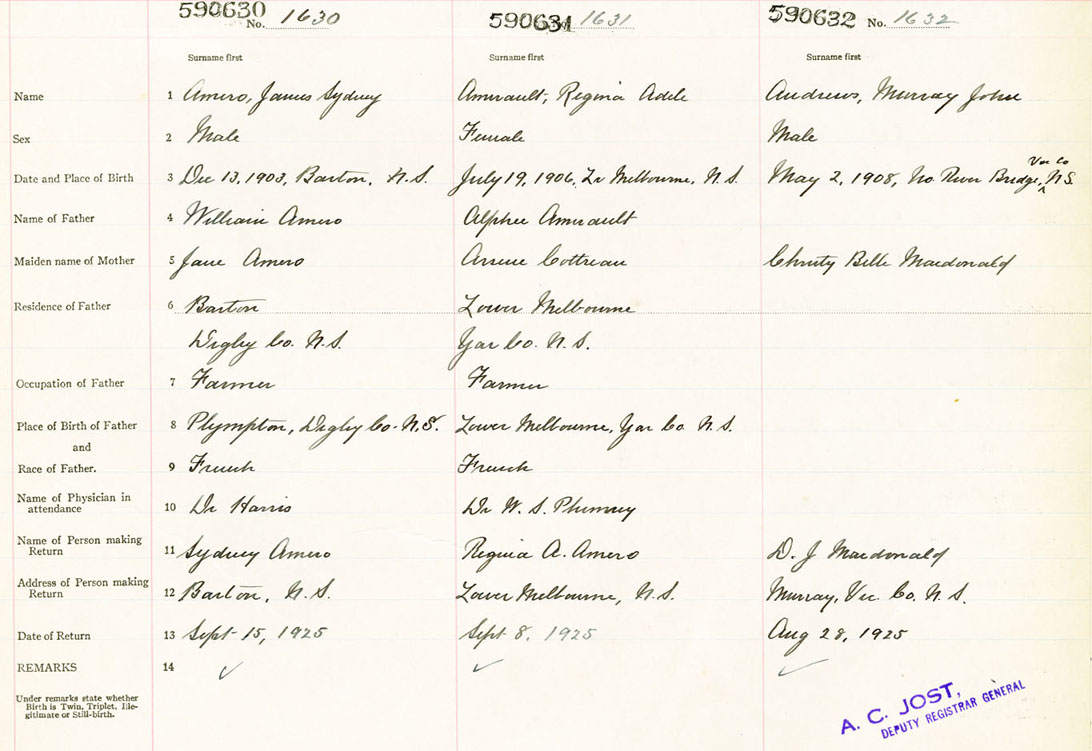 590630 No. 1630 590631 1631 590632 No. 1632
Surname first Surname first Surname first
Name 1 Amero, James Sydney Amirault, Regina Adele Andrews, Murray John
Sex 2 Male Female Male
Vic Co
Date and Place of Birth 3 Dec 13, 1903, Barton, N.S. July 19, 1906, Lr Melbourne, N.S. May 2, 1908, No River Bridge, N.S.
Name of Father 4 William Amero Alphee Amirault
Maiden name of Mother 5 Jane Amero Arsene Cottreau Christy Belle Macdonald
Residence of Father 6 Barton Lower Melbourne
Digby Co. N.S. Yar Co. N.S.
Occupation of Father 7 Farmer Farmer
Place of Birth of Father 8 Plympton, Digby Co. N.S. Lower Melbourne, Yar Co. N.S.
and
Race of Father. 9 French French
Name of Physician in
attendance 10 Dr Harris Dr W. S.
Name of Person making
Return 11 Sydney Amero Regina A. Amero D. J Macdonald
Address of Person making
Return 12 Barton, N.S. Lower Melbourne, N.S. Murray, Vic. Co. N.S.
Date of Return 13 Sept 15, 1925 Sept 8, 1925 Aug 28, 1925
REMARKS 14 ✓ ✓ ✓
Under remarks state whether
Birth is Twin, Triplet, Ille-
gitimate or Still-birth.
A. C. JOST,
DEPUTY REGISTRAR GENERAL